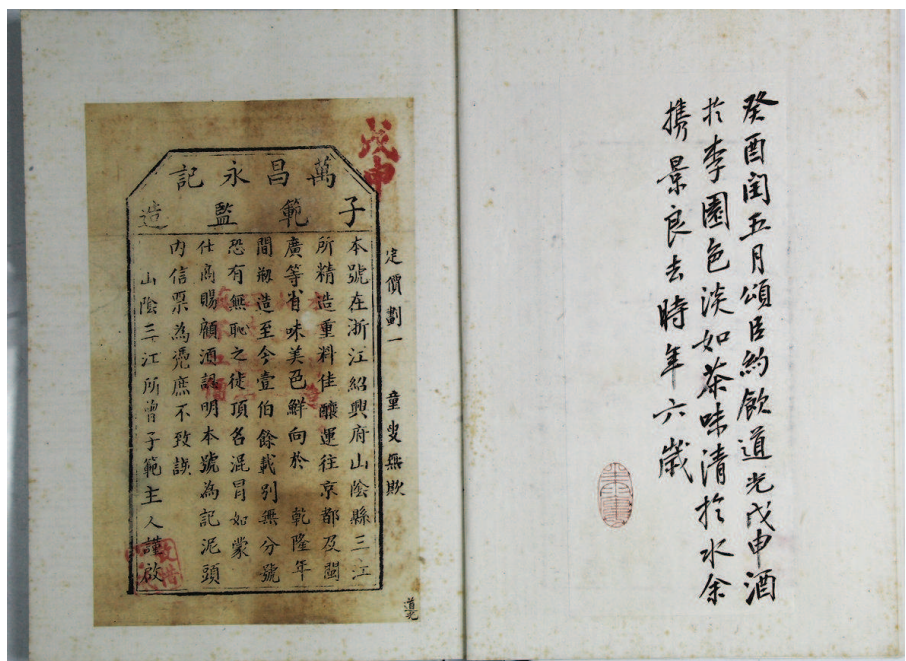 癸酉閏五月頌臣約飲道光戊申酒
於李園色淡如茶味清於水余
攜景良去時年六歲
戊申
萬昌永記
子範監造
定價劃一 童叟無欺
本號在浙江紹興府山陰縣三江
所精造重料佳釀運往京都及閩
廣等省味美色鮮向於 乾隆年
間刱造至今壹伯餘載別無分號
恐有無恥之徒頂名混冒如蒙
仕商賜顧酒認明本號為記泥頭
內信票為憑庶不致誤
山陰三江所曾子範主人謹啟
道光